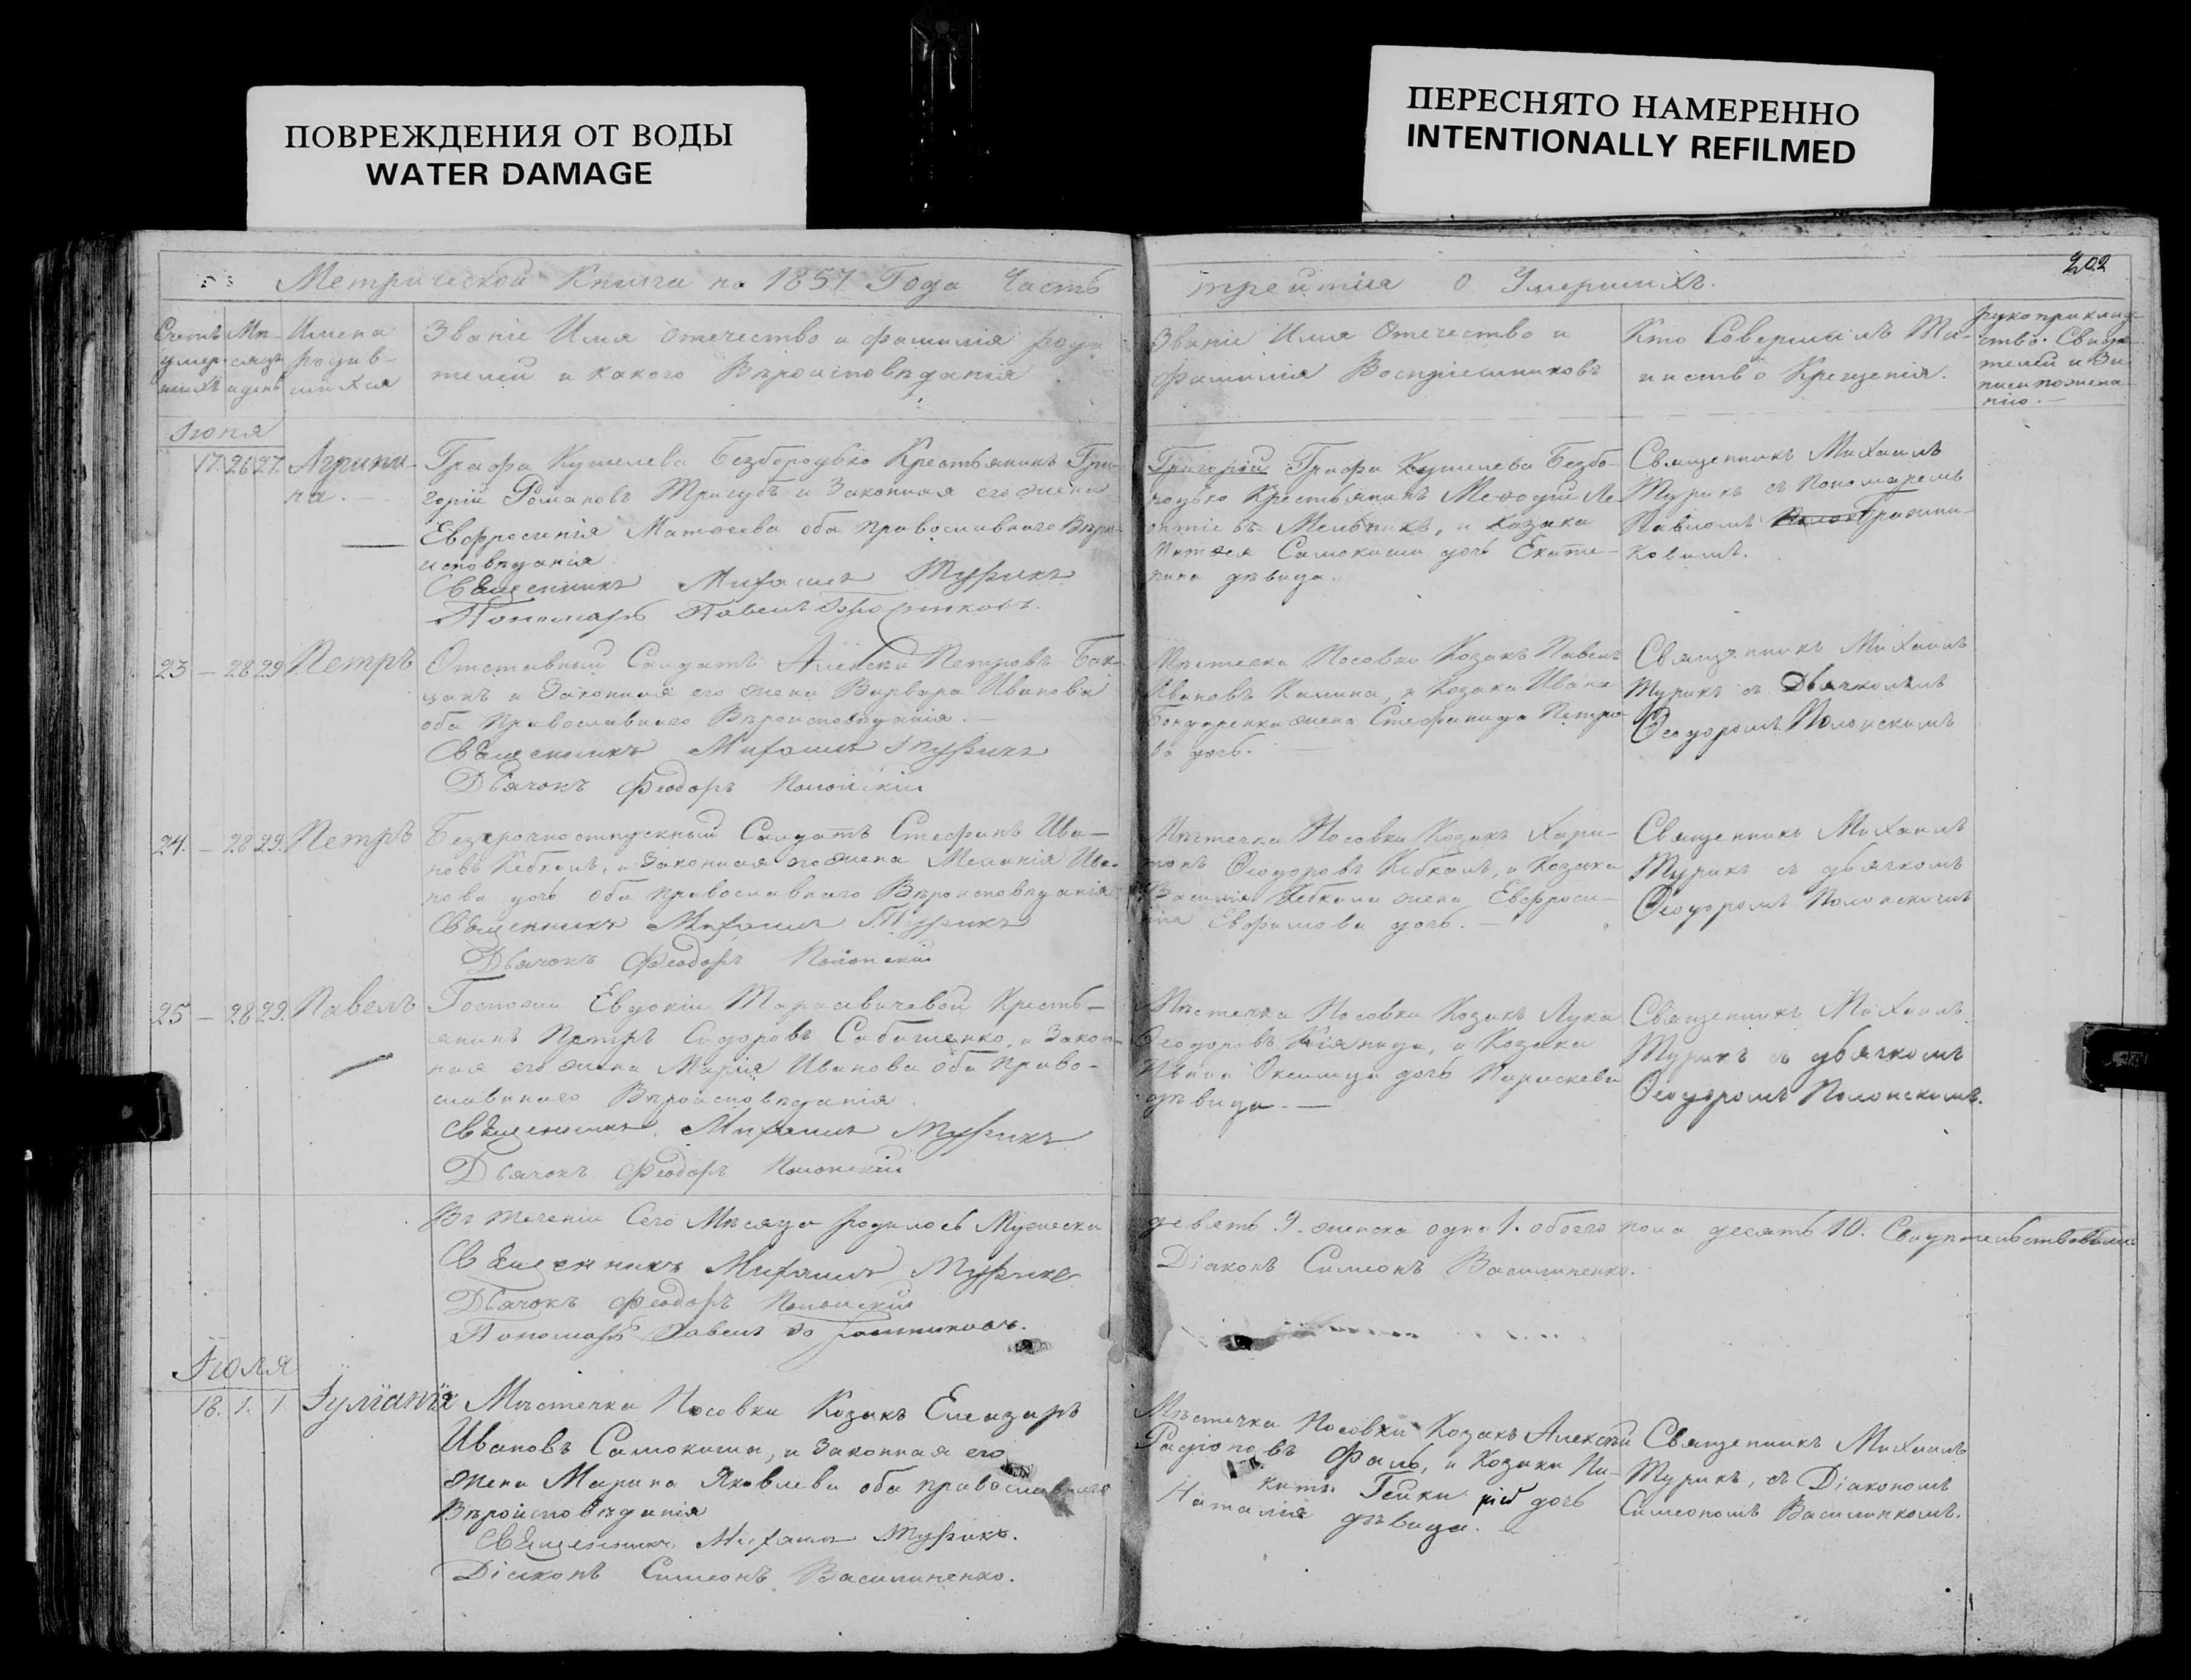 ПОВРЕЖДЕНИЯ ОТ ВОДЫ
WATER DAMAGE
ПЕРЕСНЯТО НАМЕРЕННО
INTENTIONALLY REFILMED
202
Метрической Книги на 1857 Года Часть
третiя о Умершихъ.
Счетъ умер-шихъ
Мѣ-сяцъ и день
Имена родив-шихся
Званіе Имя Отечество и фамилія роди
телей и какого Вѣроисповѣданія
Званіе Имя Отечество и
фамилія Воспріемниковъ
Кто Совершилъ Та-
инство Крещенія.
рукоприклад-
ство Свидѣ
телей
Іюня
17. 26 27. Агрипи-
на.
Графа Кушелева Безбородько Крестьянинъ Гри-
горій Романовъ Тригубъ и Законная его жена
Евфросинія Матѳеева оба православнаго Вѣро-
исповѣданія
Священникъ Михаилъ Турикъ
Пономарь Павелъ
Григорій Графа Кушелева Безбо-
родько Крестьянинъ Меѳодій Ле-
онтіевъ Мельникъ, и Козака
Матѳея Самокиши дочь Екате-
рина дѣвица.
Священникъ Михаилъ
Турикъ съ Пономаремъ
Павломъ
23 – 28 29 Петръ
Отставный Солдатъ Алексѣй Петровъ
и Законная его жена Варвара Иванова
оба Православнаго Вѣроисповѣданія.
Священникъ Михаилъ Турикъ
Дьячокъ Феодоръ Полонскій
Мѣстечка Носовки Козакъ Павелъ
Ивановъ Калина, и Козака Ивана
Бондаренка жена Стефанида Петро-
ва дочь.
Священникъ Михаилъ
Турикъ съ Дьячкомъ
Ѳеодоромъ Полонскимъ
24. – 28 29. Петръ
Безсрочноотпускный Солдатъ Стефанъ Ива-
новъ Кебкалъ, и Законная его жена Меланія Ива-
нова дочь оба православнаго Вѣроисповѣданія
Священникъ Михаилъ Турикъ
Дьячокъ Феодоръ Полонскій
Мѣстечка Носовки Козакъ Хари-
тонъ Ѳеодоровъ Кебкалъ, и Козака
Василія Кебкала жена Евфроси-
нія Евфимова дочь. –
Священникъ Михаилъ
Турикъ съ дьячкомъ
Ѳеодоромъ Полонскимъ
25 – 28 29. Павелъ
Госпожи Евдокіи Тарасевичевой Кресть-
янинъ Петръ Сидоровъ Сабашенко, и Закон-
ная его жена Марія Иванова оба Право-
славнаго Вѣроисповѣданія.
Священникъ Михаилъ Турикъ
Дьячокъ Феодоръ Полонскій
Мѣстечка Носовки Козакъ Лука
Ѳеодоровъ Кіяница, и Козака
Ивана дочь Параскева
дѣвица. –
Священникъ Михаилъ
Турикъ съ дьячкомъ
Ѳеодоромъ Полонскимъ.
Въ теченіи Сего Мѣсяца родилось Мужеска
девять 9. женска одна 1. обоего пола десять 10. Свидѣтельствовали:
Священникъ Михаилъ Турикъ
Діаконъ Симеонъ Василиненко.
Дьячокъ Феодоръ Полонскій
Пономарь Павелъ
Іюля
18. 1. 1 Іуліанія
Мѣстечка Носовки Козакъ Елеазаръ
Ивановъ Самокиша, и Законная его
жена Марина Яковлева оба православнаго
Вѣроисповѣданія
Священникъ Михаилъ Турикъ.
Діаконъ Симеонъ Василиненко.
Мѣстечка Носовки Козакъ Алексѣй
Радіоновъ Фаль, и Козака Ни-
киты Гейки дочь
Наталія дѣвица.
Священникъ Михаилъ
Турикъ, съ Діакономъ
Симеономъ Василинкомъ.